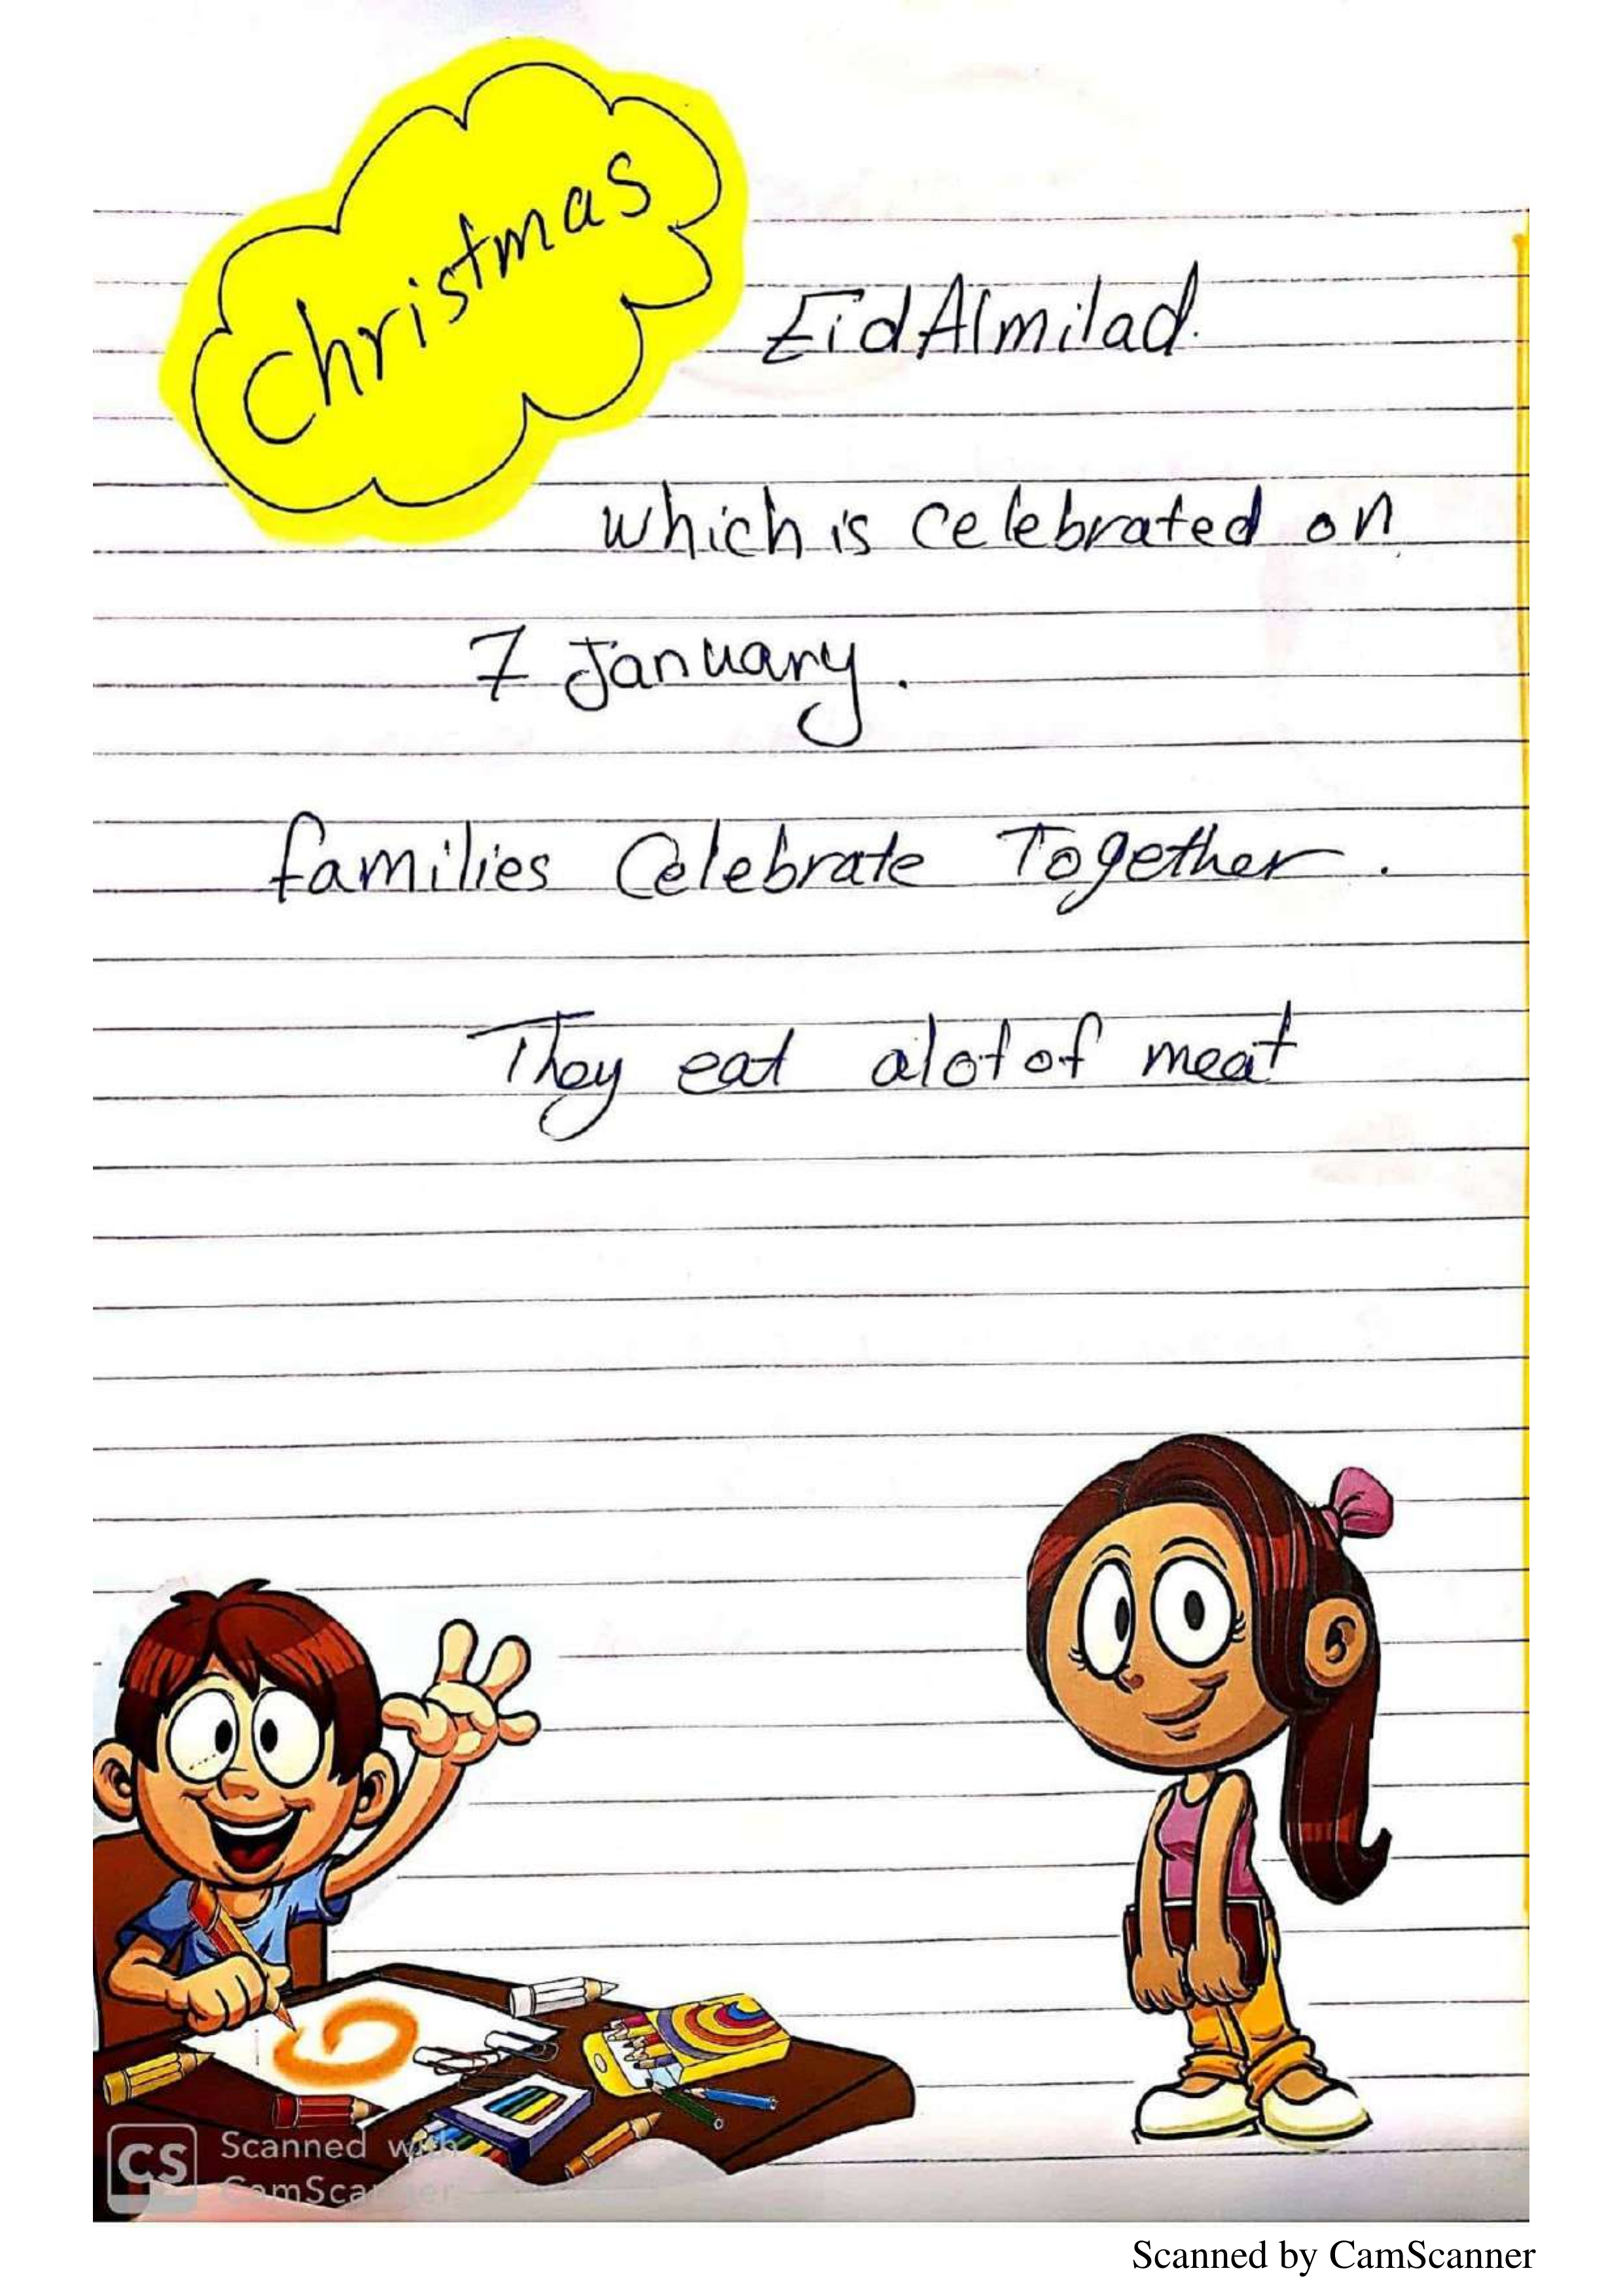 Christmas
Eid Almilad.
which is celebrated on
7 January.
families Celebrate Together.
They eat alot of meat
CS Scanned with
CamScanner
Scanned by CamScanner